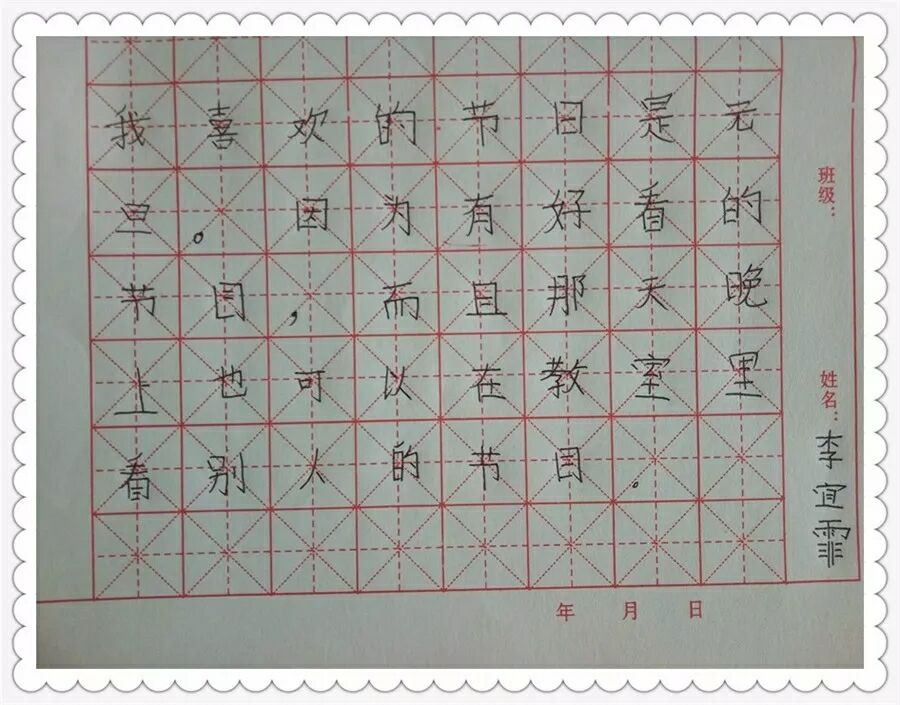 我喜欢的节日是元
旦。因为有好看的
节目，而且那天晚
上也可以在教室里
看别人的节目。
班级：
姓名：李宜霏
年 月 日